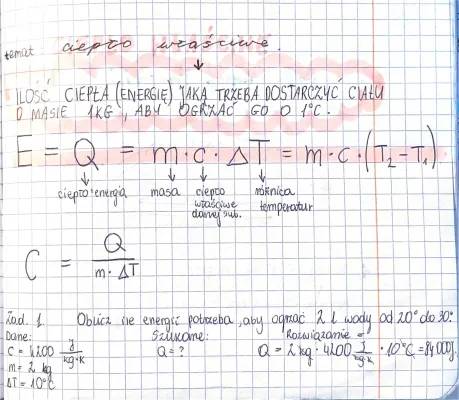 temat ciepło właściwe.
↓
ILOŚĆ CIEPŁA (ENERGIĘ) JAKĄ TRZEBA DOSTARCZYĆ CIAŁU
O MASIE 1KG, ABY OGRZAĆ GO O 1°C.
E = Q = m·c·ΔT = m·c·(T₂-T₁)
↓ ↓ ↓ ↓
ciepło·energia masa ciepło właściwe danej sub. różnica temperatur
C = Q / m·ΔT
Zad. 1. Oblicz ile energii potrzeba, aby ogrzać 2 l wody od 20° do 30°
Dane: Szukane: Rozwiązanie =
C = 4200 J/kg·K Q = ? Q = 2 kg · 4200 J/kg·K · 10°C = 84000J.
m = 2 kg
ΔT = 10°C